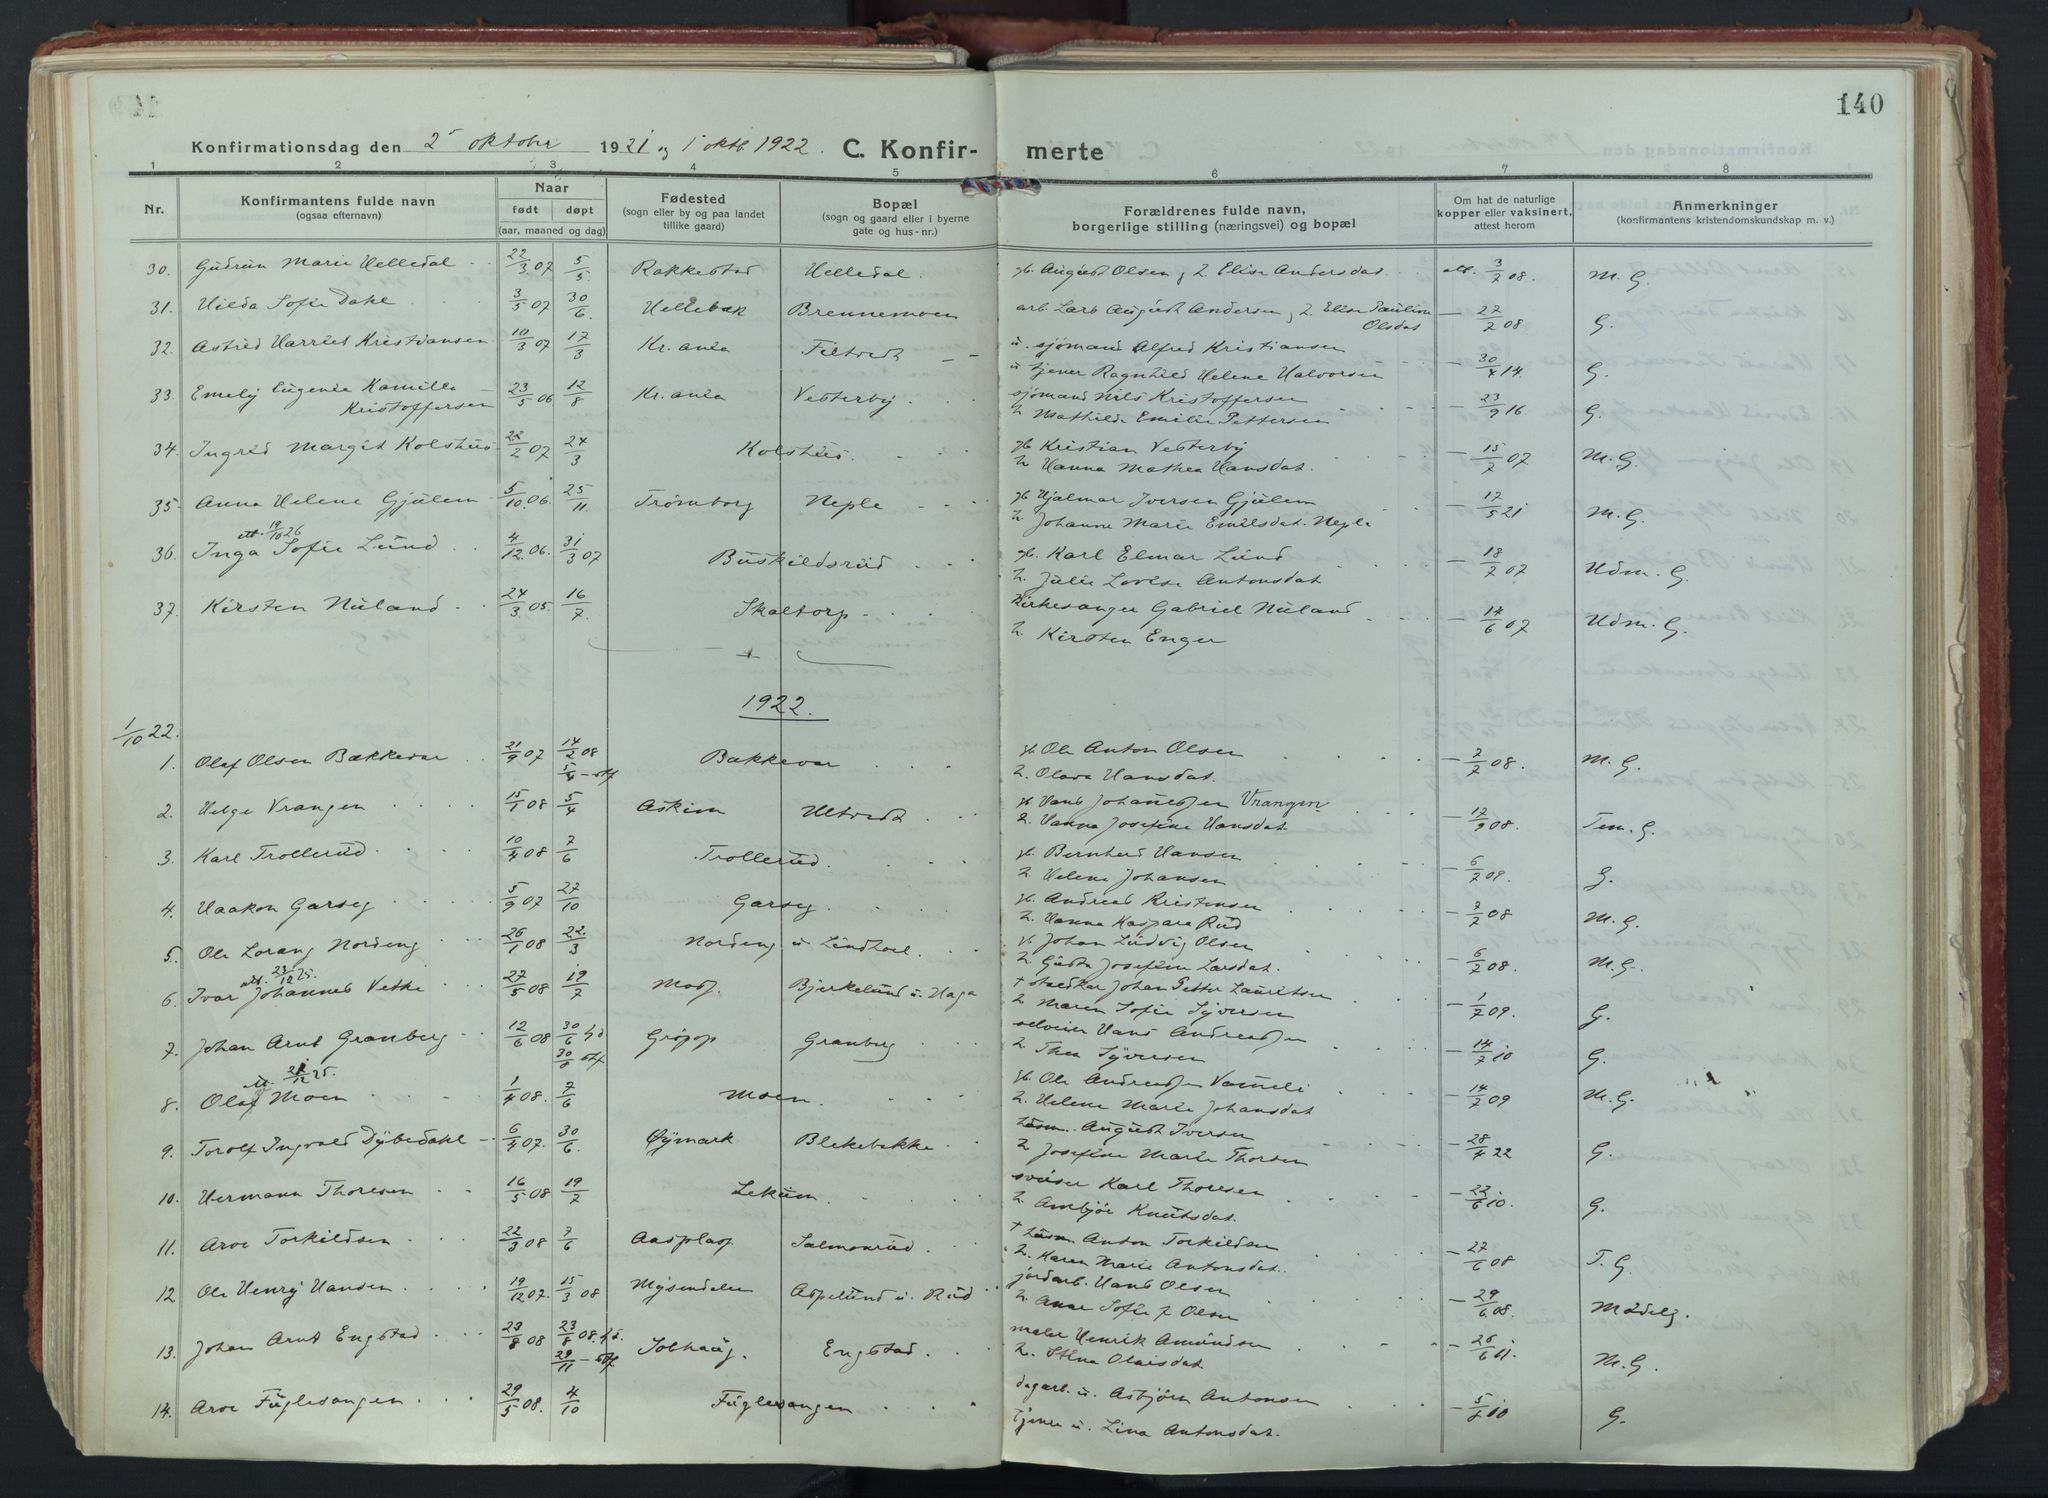 140
Konfirmationsdag den 2 oktober 1921 og 1 oktb. 1922. C. Konfir- merte
1 2 3 4 5 6 7 8
Nr. Konfirmantens fulde navn (ogsaa efternavn) Naar født døpt (aar, maaned og dag) Fødested (sogn eller by og paa landet tillike gaard) Bopæl (sogn og gaard eller i byerne gate og hus-nr.) Forældrenes fulde navn, borgerlige stilling (næringsvei) og bopæl Om hat de naturlige kopper eller vaksinert, attest herom Anmerkninger (konfirmantens kristendomskundskap m. v.)
30. Gudrun Marie Helledal 22/3 07 5/5. Rakkestad Helledal. gb. August Olsen og h. Elise Andersdat. att. 3/7 08. M. G.
31. Hilda Sofie Dahl 3/5 07 30/6 Hellebæk Brennemoen arb. Lars August Andersen og h. Elise Pauline Olsdat - 27/7 08 G.
32. Astrid Harriet Kristiansen 10/3 07 17/3 Kr.ania Filtvedt u. sjømand Alfred Kristiansen
u tjener Ragnhild Helene Halvorsen - 30/4 14. G.
33. Emely Eugenie Kamilla Kristoffersen 23/5 06 12/8 Kr.ania Vesterby sjømand Nils Kristoffersen
h. Mathilde Emilie Pettersen - 23/9 16 G.
34. Ingrid Margit Kolshus 22/2 07 24/3 Kolshus. gb Kristian Vesterby
h. Hanna Mathea Hansdat. - 15/7 07 M. G.
35. Anna Helene Gjulem 5/10 06. 25/11. Trømborg Neple gb Hjalmar Iversen Gjulem
h. Johanne Marie Emilsdat. Neple - 17/5 21 M. G.
att. 19/10 26
36. Inga Sofie Lund 4/12 06. 31/3 07 Buskildsrud gb. Karl Elmar Lund
h. Julie Lovise Antonsdat - 18/7 07 Udm. G.
37. Kirsten Nuland 24/3 05. 16/7. Skaltorp Kirkesanger Gabriel Nuland
h. Kirsten Enger - 14/6 07 Udm. G.
1922.
1/10 22.
1. Olaf Olsen Bækkevar 21/9 07 14/2 08 5/4 - stf Bækkevar gb. Ole Anton Olsen
h. Olava Hansdat. - 2/7 08. M. G.
2. Helge Vrangen 15/1 08 5/4 Askim Ultvedt gb Hans Johannessen Vrangen
h. Hanna Josefine Hansdat. - 17/9 08. Tem. G.
3. Karl Trollerud 10/4 08 7/6 Trollerud. gb. Bernhard Hansen
h. Helene Johansen - 6/7 09. G.
4. Haakon Garseg 5/9 07 27/10 Garseg gb. Andreas Kristensen
h. Hanna Kaspara Rud - 7/7 08 M. G.
5. Ole Lorang Nordeng 26/1 08 22./3 Nordeng u. Lindhol. gb Johan Ludvig Olsen
h. Gusta Josefine Larsdat. - 6/7 08. M. G.
att. 23/12 25.
6. Ivar Johannes Vethe 27/5 08 19/7 Moss. Bjerkelund u. Haga † Johan Petter Lauritsen
h. Maren Sofie Syversen - 1/7 09. G.
7. Johan Arnt Granberg 12/6 08 30/6 hd 30/8 stf Grøgop Granberg selveier Hans Andreassen
h. Thea Syversen - 14/7 10 G.
att. 21/12 25.
8. Olaf Moen 1/4 08. 7/6 Moen. gb. Ole Andreassen Vameli
h. Helene Marie Johansdat - 14/7 09 M. G.
9. Torolf Ingvald Dybedahl 6/4 07. 30/6. Øymark Blekebakke husm. August Iversen
h. Josefine Marie Thorsen - 28/4 22 G.
10. Hermann Thoresen 16/5 08 19/7 Lekum sveiser Karl Thoresen
h. Ambjør Knutsdat. - 22/6 10. G.
11. Arve Torkildsen 22/3 08 7/6 Aasplass Salmonrud † husm. Anton Torkildsen
h. Karen Marie Antonsdat. - 27/6 08 T. G.
12 Ole Henry Hansen 19/12 07. 15/3 08 Mysendalen Aspelund u. Rud jordarb. Hans Olsen
h. Anne Sofie f. Olsen - 29/6 08. Mådelg.
13. Johan Arnt Engstad 23/8 08 23/8 08. hd. 29/11 - stf Solhaug. Engstad. maler Henrik Amundsen
h. Stina Olaisdat - 26/6 11. M. G.
14. Arve Fuglesangen 29/5 08. 4/10 Fuglesangen dagarb. u. Asbjørn Antonsen
tjener u. Lina Antonsdat. - 5/8 10 G.